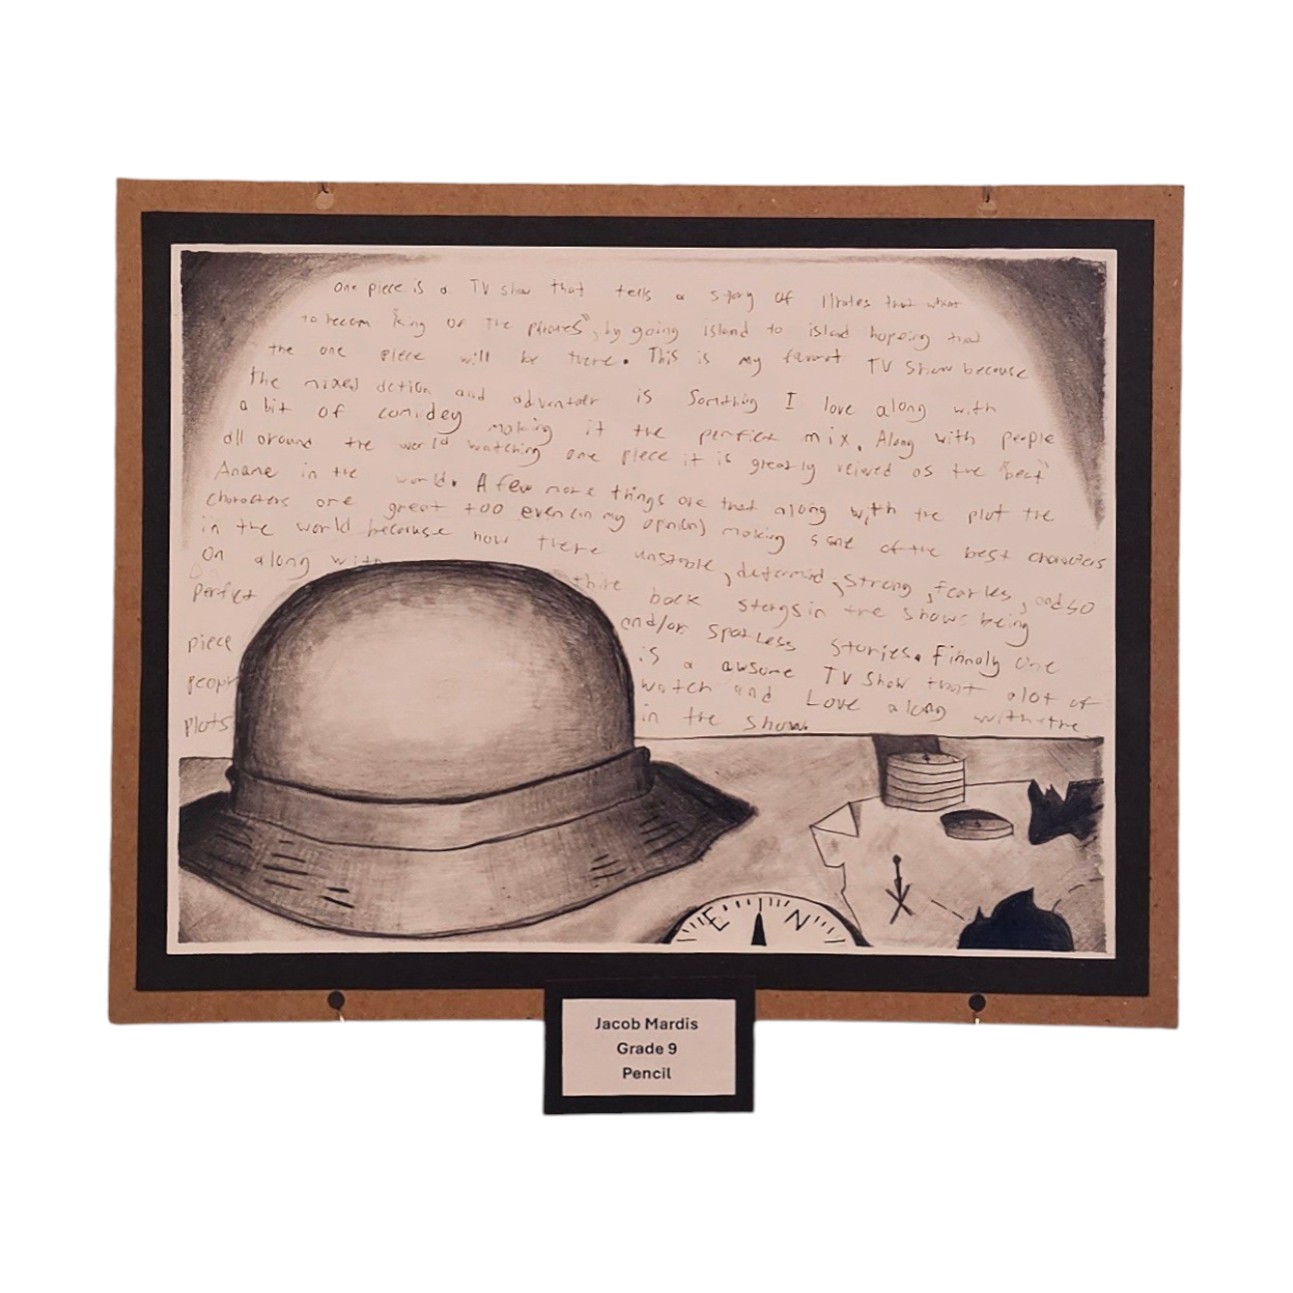 One piece is a TV show that tells a story of that
to becom "king of the by going island to islad hopeing that
the one piece will be there. This is my favorot TV Show because
the mixed action and adventoir is Somthing I love along with
a bit of comidey making it the perfect mix. Along with people
all around the world watching one piece it is greatly reiwed as the "best"
Aname in the world. A few more things are that along with the plot the
characters are great too even (in my opinion) making some of the best characters
in the world because how there unstable, determid, strong, fearles, and so
on along with thire back storys in the shows being
perfict and/or spotless stories. Finnaly one
piece is a awsome TV Show that alot of
peopl watch and Love along with the
plots in the show.
E N
Jacob Mardis
Grade 9
Pencil